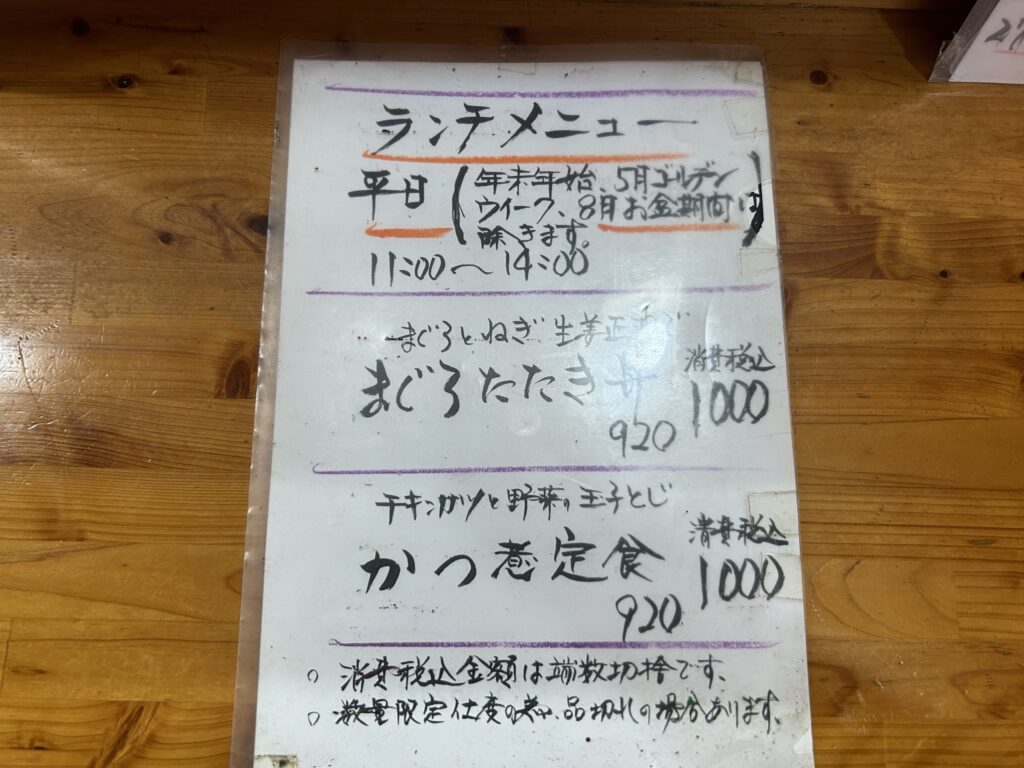 ランチメニュー
平日
(年末年始、5月ゴルデン
ウイーク、8月お盆期間は
除きます。)
11:00〜14:00
まぐろとねぎ 生姜
まぐろたたき丼
920
消費税込
1000
チキンカツと野菜の玉子とじ
かつ煮定食
920
消費税込
1000
○ 消費税込金額は端数切捨です。
○ 数量限定仕度の為、品切れの場合あります。